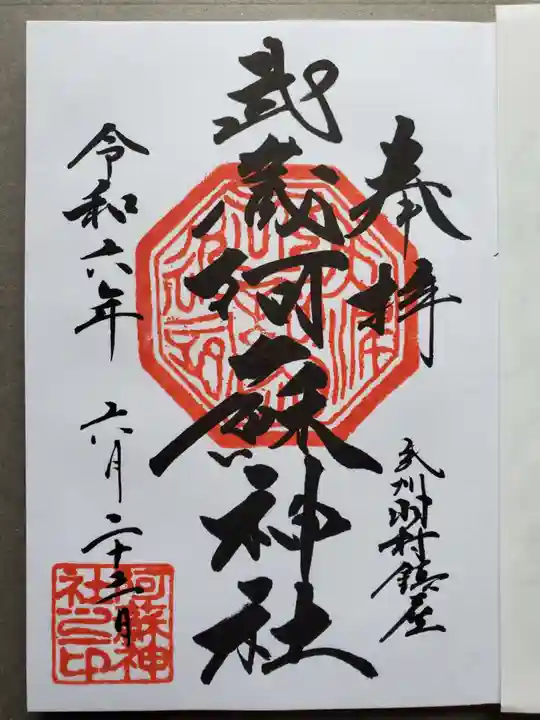 奉拝
武州羽村鎮座
武蔵阿蘇神社
令和六年
六月二十三日
阿蘇神
社之印